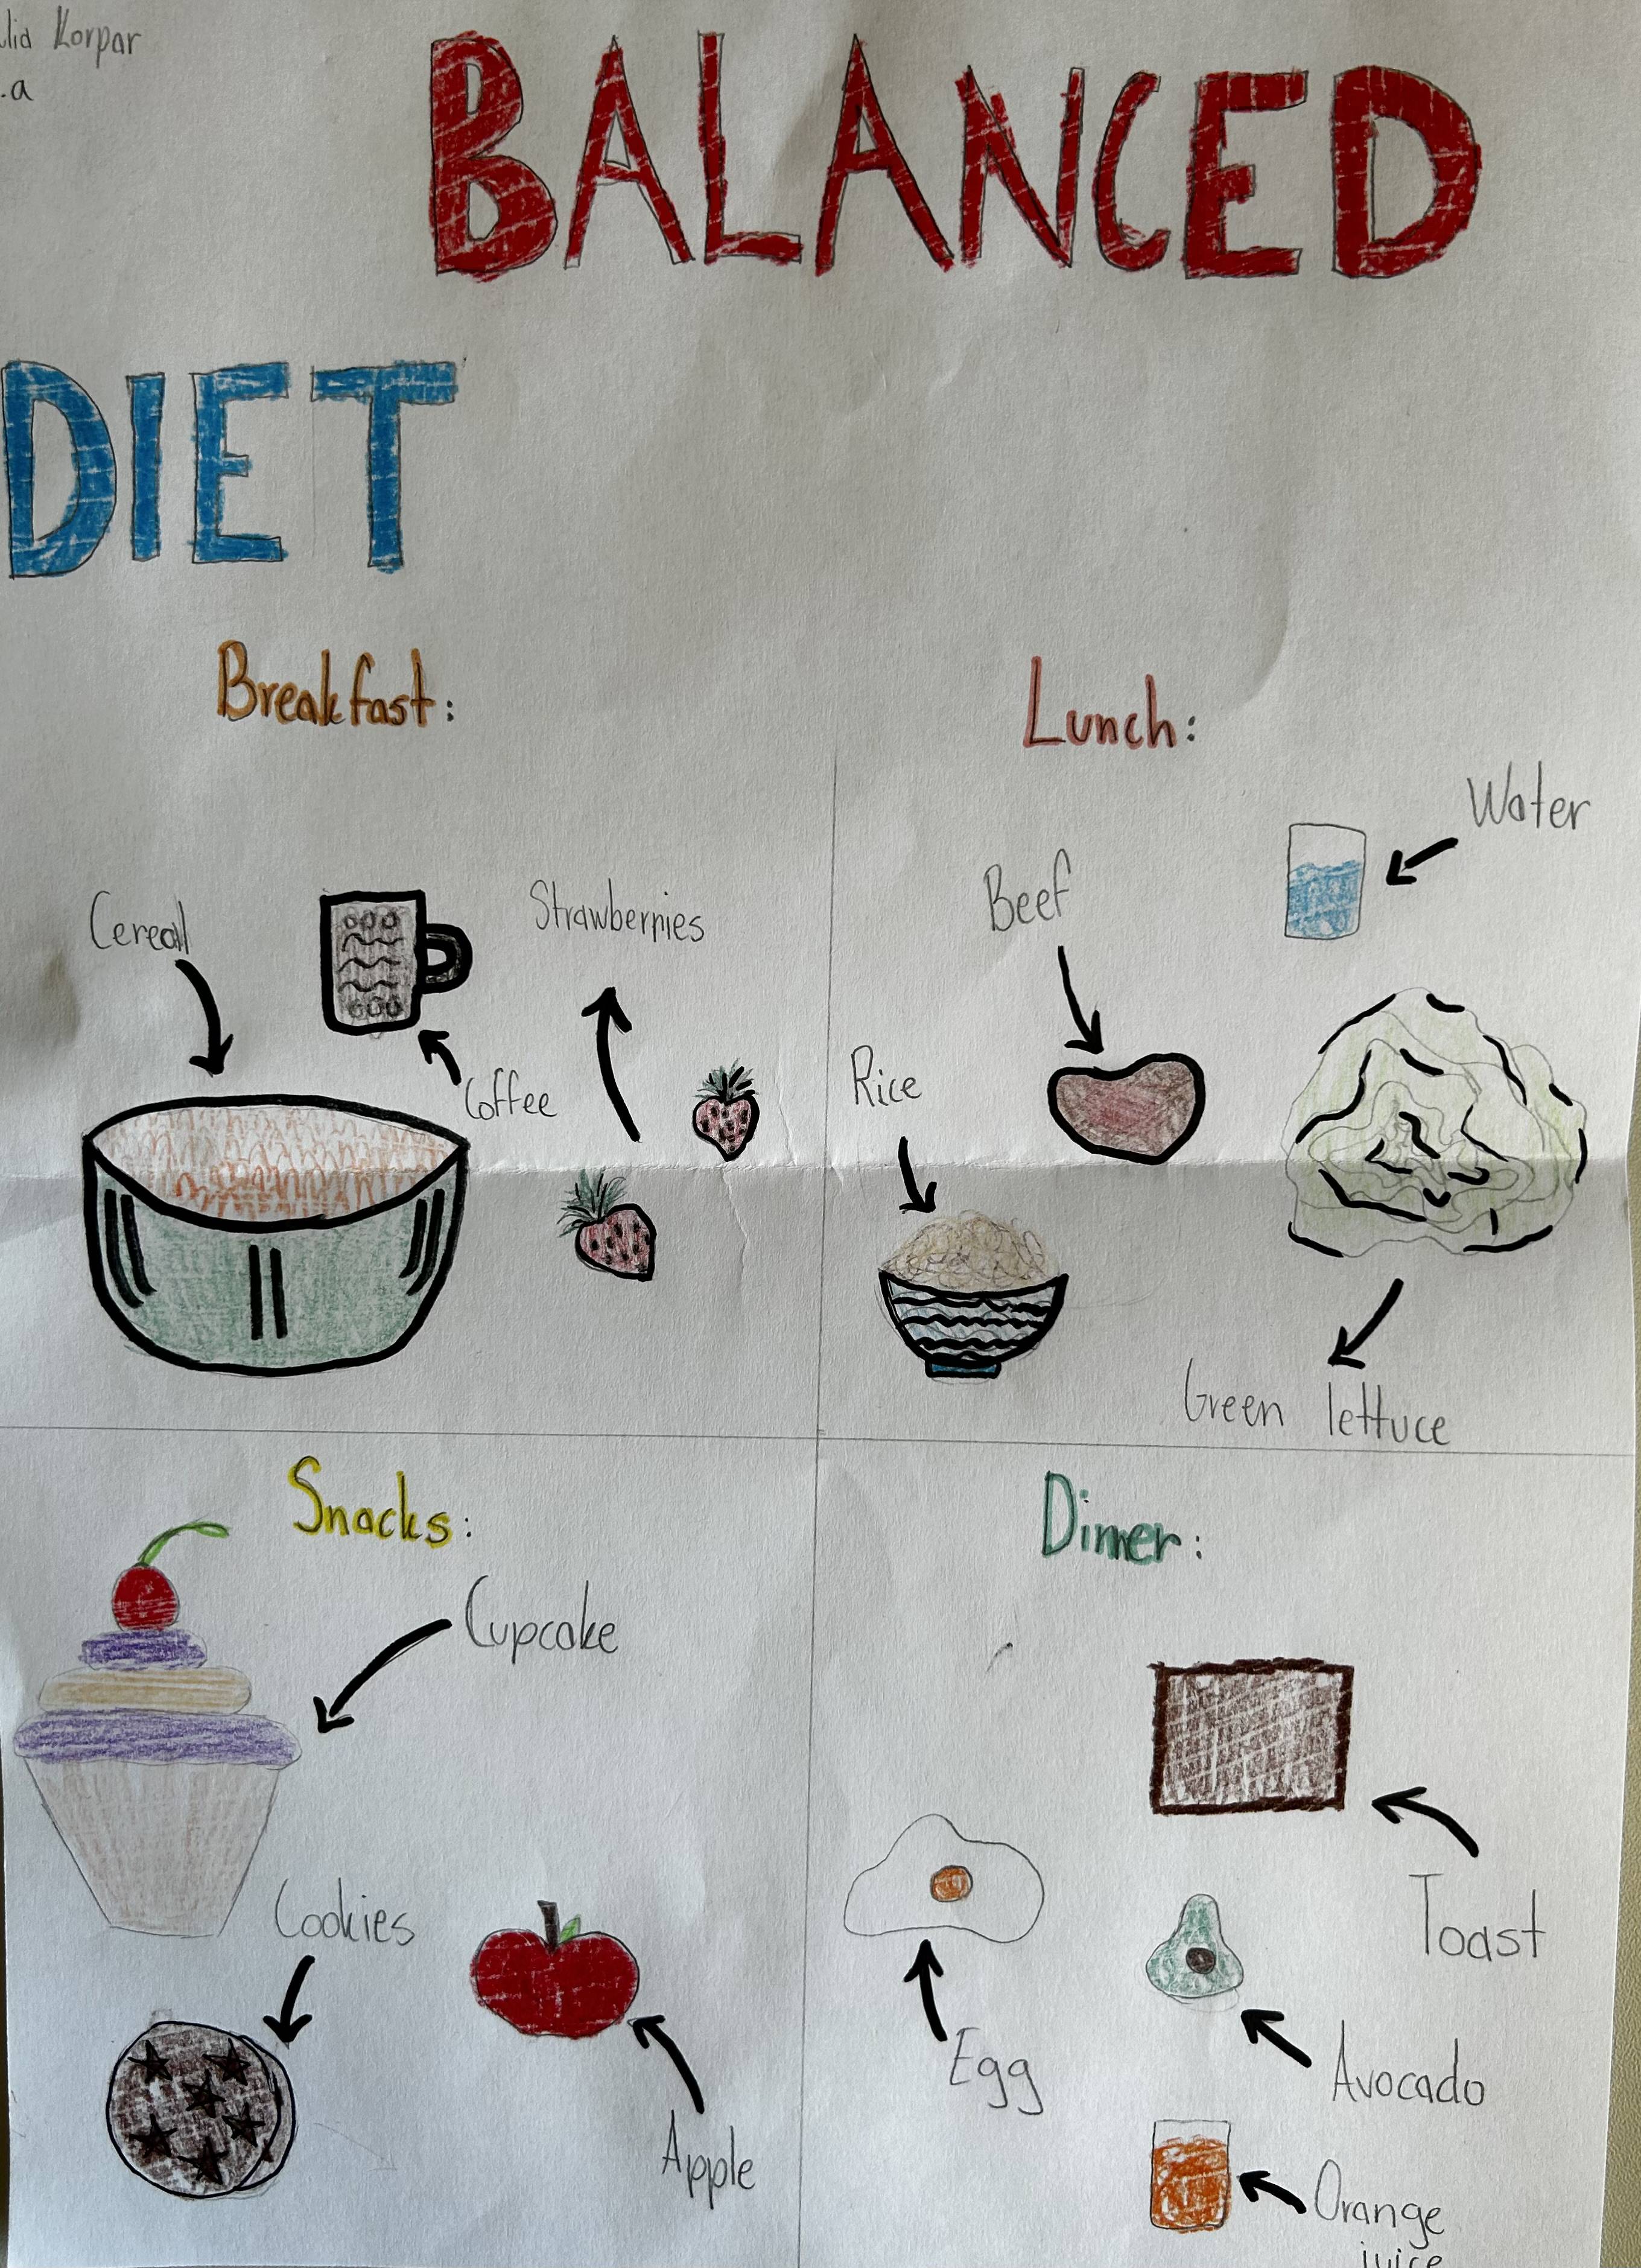 Korpar
.a
BALANCED
DIET
Breakfast:
Cereal
Strawberries
Coffee
Lunch:
Water
Beef
Rice
Green lettuce
Snacks:
Cupcake
Cookies
Apple
Dinner:
Toast
Egg
Avocado
Orange
juice